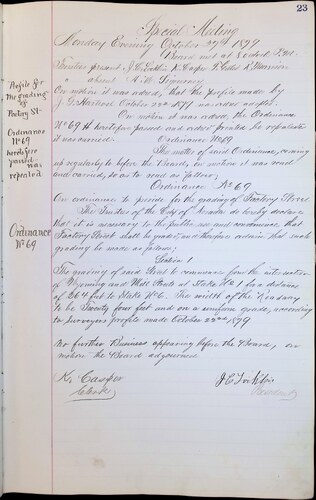 23
Special Meeting
Monday Evening October 27th 1879
Board met at 8 o'clock P.M.
Trustees present, J.C. K. Casper
absent
On motion it was ordered, that the profile made by
October 22nd 1879 as
On motion it was ordered, the Ordinance
No 69 heretofore passed and ordered printed be repealed
it was carried. Ordinance No 69
The matter of said Ordinance, coming
up regularly to before the Board, on motion it was read
and carried, so as to read as follows;
Ordinance No 69.
An ordinance to provide for the grading of Factory Street
The Trustees of the City of do hereby declare
that it is necessary to the public use and convenience, that
Factory Street shall be graded and therefore ordain that such
grading be made as follows;
Section 1
The grading of said Street to commence from the intersection
of Wyoming and Mill Streets at Stake No 1 for a distance
of feet to Stake No 6. The width of the Roadway
to be Twenty four feet and on a uniform grade, according
to Surveyors profile made October 22nd 1879
No further Business appearing before the Board, on
motion the Board adjourned.
K. Casper
Clerk
J.C.
President
Profile for
the grading
of
Factory St-
Ordinance
No 69
heretofore
passed-
was
repealed
Ordinance
No 69